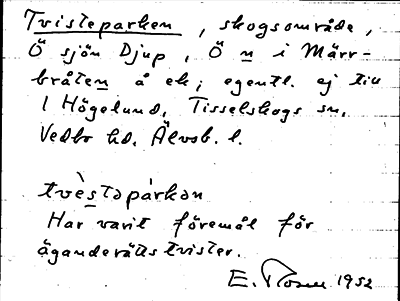 Tvisteparken, skogsområde,
Ö sjön Djup, Ö n i Märr-
bråten å ek; egentl. ej till
1 Högelund, Tisselskogs sn,
Vedbo hd. Älvsb. l.
tvèstapárkan
Har varit föremål för
äganderättstvister.
E. 1952